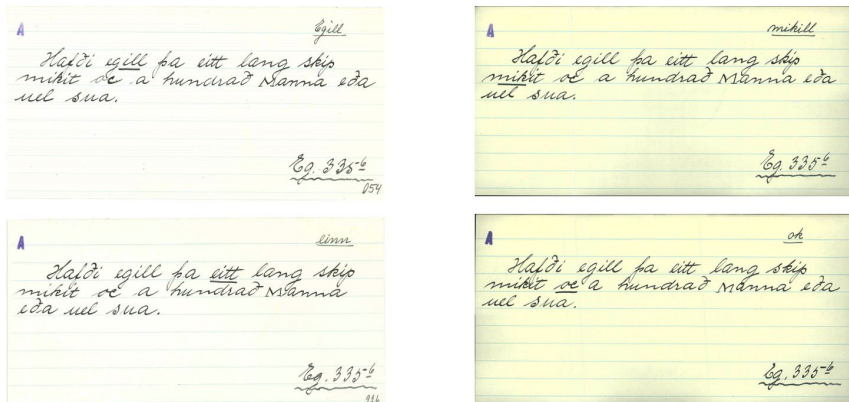 A
Egill
Hafði egill þa eitt lang skip
mikit oc a hundrað Manna eða
uel sua.
Eg. 335⁶
054
A
mikill
Hafði egill þa eitt lang skip
mikit oc a hundrað Manna eða
uel sua.
Eg. 335⁶
A
einn
Hafði egill þa eitt lang skip
mikit oc a hundrað Manna
eða uel sua.
Eg. 335⁶
A
ok
Hafði egill þa eitt lang skip
mikit oc a hundrað Manna eða
uel sua.
Eg. 335⁶